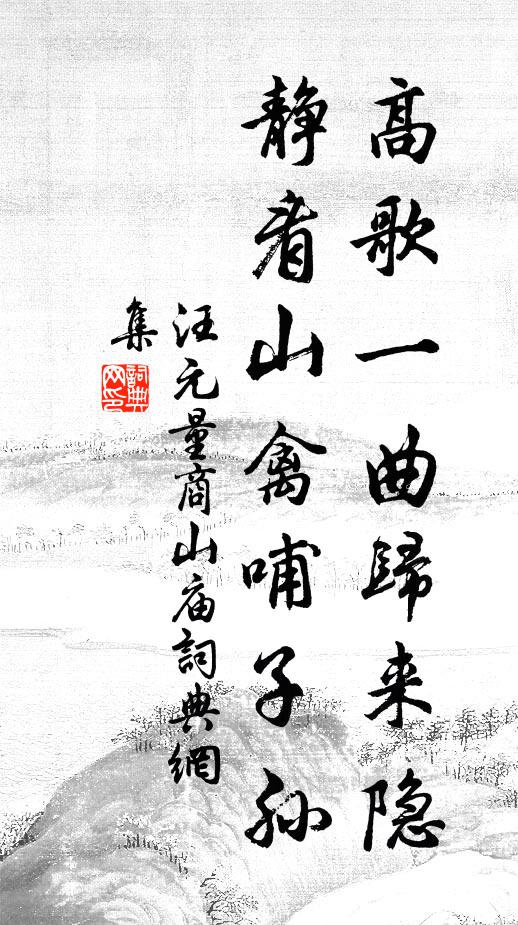 高歌一曲歸来隐
静看山禽哺子孙
汪元量商山庙詞典網
集
詞典
网印